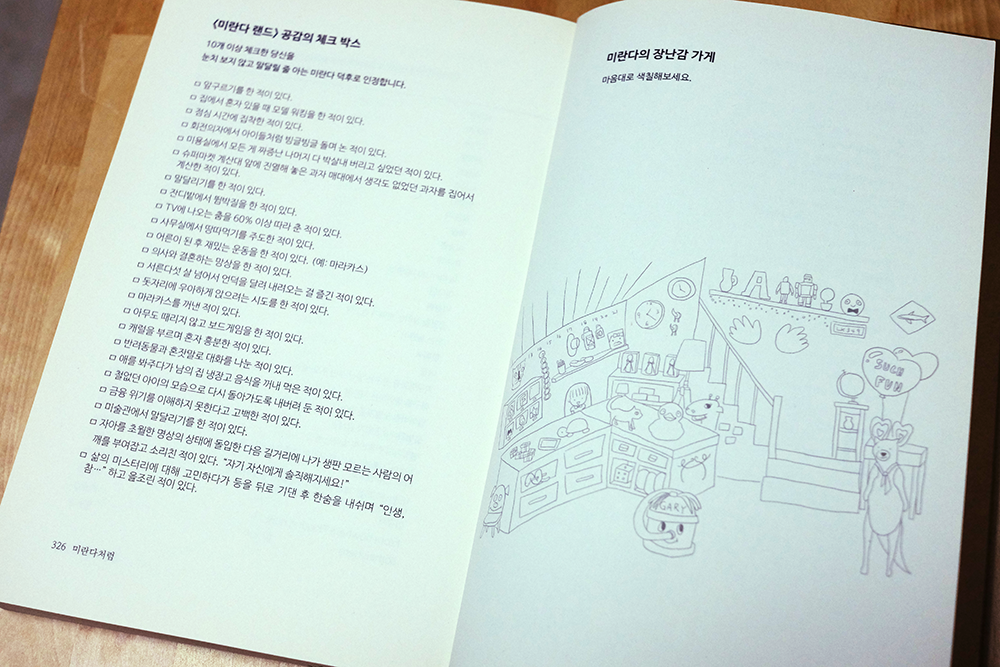 〈미란다 랜드〉 공감의 체크 박스
10개 이상 체크한 당신을
눈치 보지 않고 말달릴 줄 아는 미란다 덕후로 인정합니다.
□ 앞구르기를 한 적이 있다.
□ 집에서 혼자 있을 때 모델 워킹을 한 적이 있다.
□ 점심 시간에 집착한 적이 있다.
□ 회전의자에서 아이들처럼 빙글빙글 돌며 논 적이 있다.
□ 미용실에서 모든 게 짜증난 나머지 다 박살내 버리고 싶었던 적이 있다.
□ 슈퍼마켓 계산대 앞에 진열해 놓은 과자 매대에서 생각도 없었던 과자를 집어서
계산한 적이 있다.
□ 말달리기를 한 적이 있다.
□ 잔디밭에서 텀박질을 한 적이 있다.
□ TV에 나오는 춤을 60% 이상 따라 춘 적이 있다.
□ 사무실에서 땅따먹기를 주도한 적이 있다.
□ 어른이 된 후 재밌는 운동을 한 적이 있다. (예: 마라카스)
□ 의사와 결혼하는 망상을 한 적이 있다.
□ 서른다섯 살 넘어서 언덕을 달려 내려오는 걸 즐긴 적이 있다.
□ 돗자리에 우아하게 앉으려는 시도를 한 적이 있다.
□ 마라카스를 꺼낸 적이 있다.
□ 아무도 때리지 않고 보드게임을 한 적이 있다.
□ 캐럴을 부르며 혼자 흥분한 적이 있다.
□ 반려동물과 혼잣말로 대화를 나눈 적이 있다.
□ 애를 봐주다가 남의 집 냉장고 음식을 꺼내 먹은 적이 있다.
□ 철없던 아이의 모습으로 다시 돌아가도록 내버려 둔 적이 있다.
□ 금융 위기를 이해하지 못한다고 고백한 적이 있다.
□ 미술관에서 말달리기를 한 적이 있다.
□ 자아를 초월한 명상의 상태에 돌입한 다음 길거리에 나가 생판 모르는 사람의 어
깨를 부여잡고 소리친 적이 있다. “자기 자신에게 솔직해지세요!”
□ 삶의 미스터리에 대해 고민하다가 등을 뒤로 기댄 후 한숨을 내쉬며 “인생,
참…” 하고 읊조린 적이 있다.
326 미란다처럼
미란다의 장난감 가게
마음대로 색칠해보세요.
A
SUCH
FUN
GARY